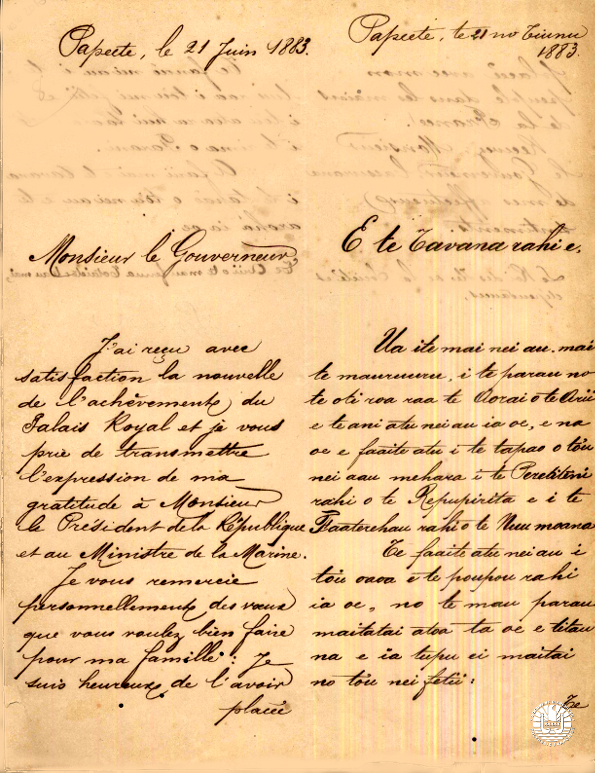 Papeete, le 21 Juin 1883.
Monsieur le Gouverneur
J'ai reçu avec
satisfaction la nouvelle
de l'achèvement du
Palais Royal et je vous
prie de transmettre
l'expression de ma
gratitude à Monsieur
le Président de la République
et au Ministre de la Marine.
Je vous remercie
personnellement des vœux
que vous voulez bien faire
pour ma famille : Je
suis heureux de l'avoir
placée
Papeete, te 21 no Tiunu
1883.
E te Tavana rahi e,
Ua ite mai nei au. mai
te mauruuru, i te parau no
te oti roa raa te Aorai o te Arii
e te ani atu nei au ia oe, e na
oe e faaite atu i te tapao o tou
nei aau mehara i te Peretiteni
rahi o te Repupirita e i te
Faaterehau rahi o te Nuu moana
Te faaite atu nei au i
tou oaoa e te poupou rahi
ia oe, no te mau parau
maitatai atoa ta oe e titau
na e ia tupu ei maitai
no tou nei fetii :
Te